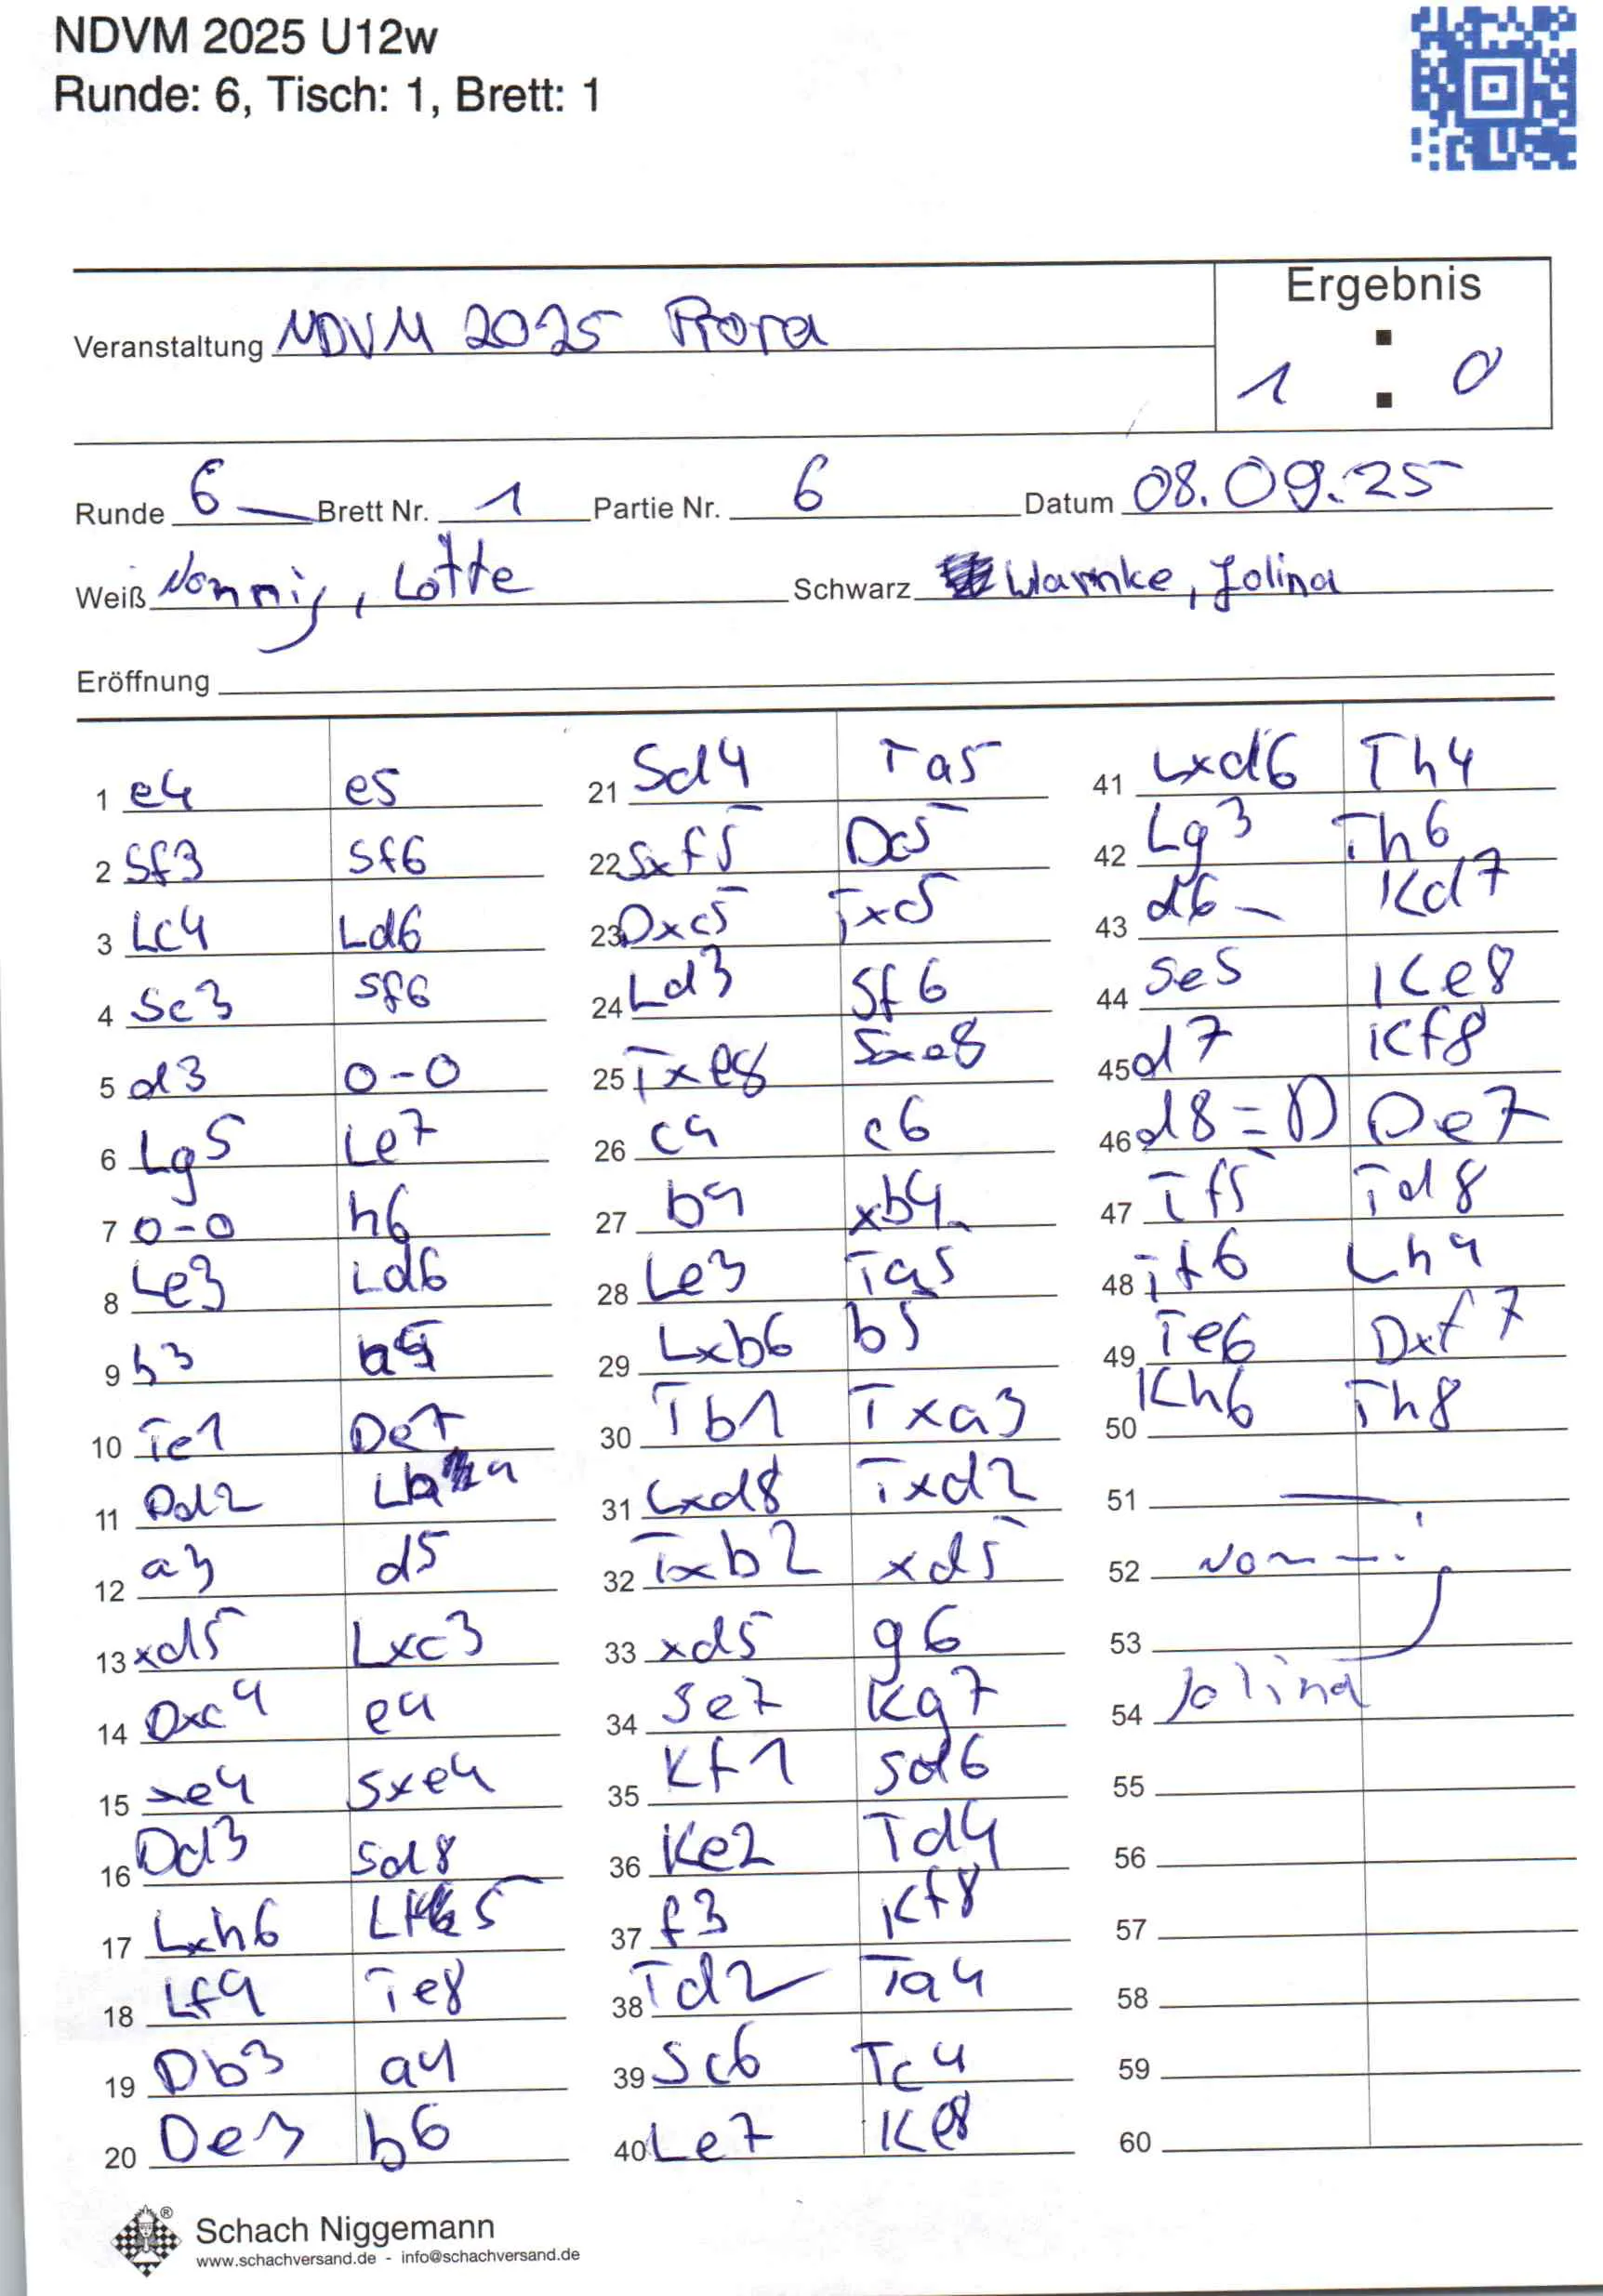 NDVM 2025 U12w
Runde: 6, Tisch: 1, Brett: 1
Ergebnis
Veranstaltung NDVM 2025 Prora
1 : 0
Runde 6 Brett Nr. 1 Partie Nr. 6 Datum 08.09.25
Weiß Lotte Schwarz Warnke, Jolina
Eröffnung
1 e4 e5
2 Sf3 Sf6
3 Lc4 Ld6
4 Sc3 Sf6
5 d3 0-0
6 Lg5 Le7
7 0-0 h6
8 Le3 Ld6
9 h3 a5
10 Te1 De7
11 Dd2 Lb4
12 a3 d5
13 xd5 Lxc3
14 Dxc4 e4
15 xe4 Sxe4
16 Dd3 Sd8
17 Lxh6 Lf5
18 Lf4 Te8
19 Db3 a4
20 De3 b6
21 Sd4 Ta5
22 Sxf5 Dc5
23 Dxc5 Txc5
24 Ld3 Sf6
25 Txe8 Sxe8
26 c4 c6
27 b4 xb4
28 Le3 Ta5
29 Lxb6 b5
30 Tb1 Txa3
31 Lxd8 Txd2
32 Txb2 xd5
33 xd5 g6
34 Se7 Kg7
35 Kf1 Sd6
36 Ke2 Td4
37 f3 Kf8
38 Td2 Ta4
39 Sc6 Tc4
40 Le7 Ke8
41 Lxd6 Th4
42 Lg3 Th6
43 d6 Kd7
44 Se5 Ke8
45 d7 Kf8
46 d8=D De7
47 Tf5 Td8
48 Tf6 Lh4
49 Te6 Dxf7
50 Kh6 Th8
51
52
53
54 Jolina
55
56
57
58
59
60
®
Schach Niggemann
www.schachversand.de - info@schachversand.de